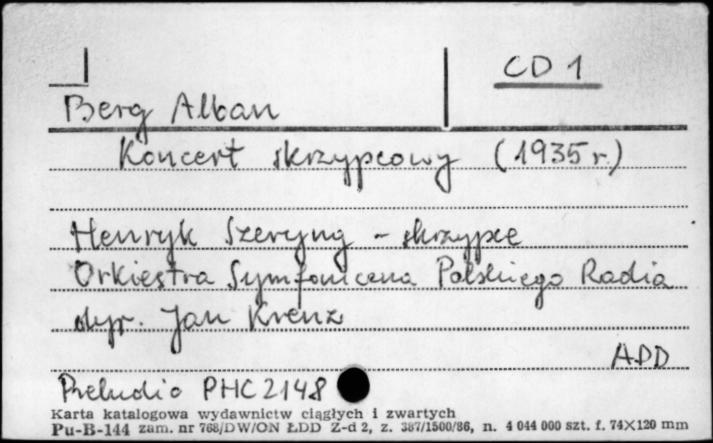 CD 1
Berg Alban
Koncert skrzypcowy (1935 r.)
Henryk Szeryng - skrzypce
Orkiestra Symfoniczna Polskiego Radia
dyr. Jan Krenz
ADD
Preludio PHC 2148
Karta katalogowa wydawnictw ciągłych i zwartych
Pu-B-144 zam. nr 768/DW/ON ŁDD Z-d 2, z. 387/1500/86, n. 4 044 000 szt. f. 74×120 mm